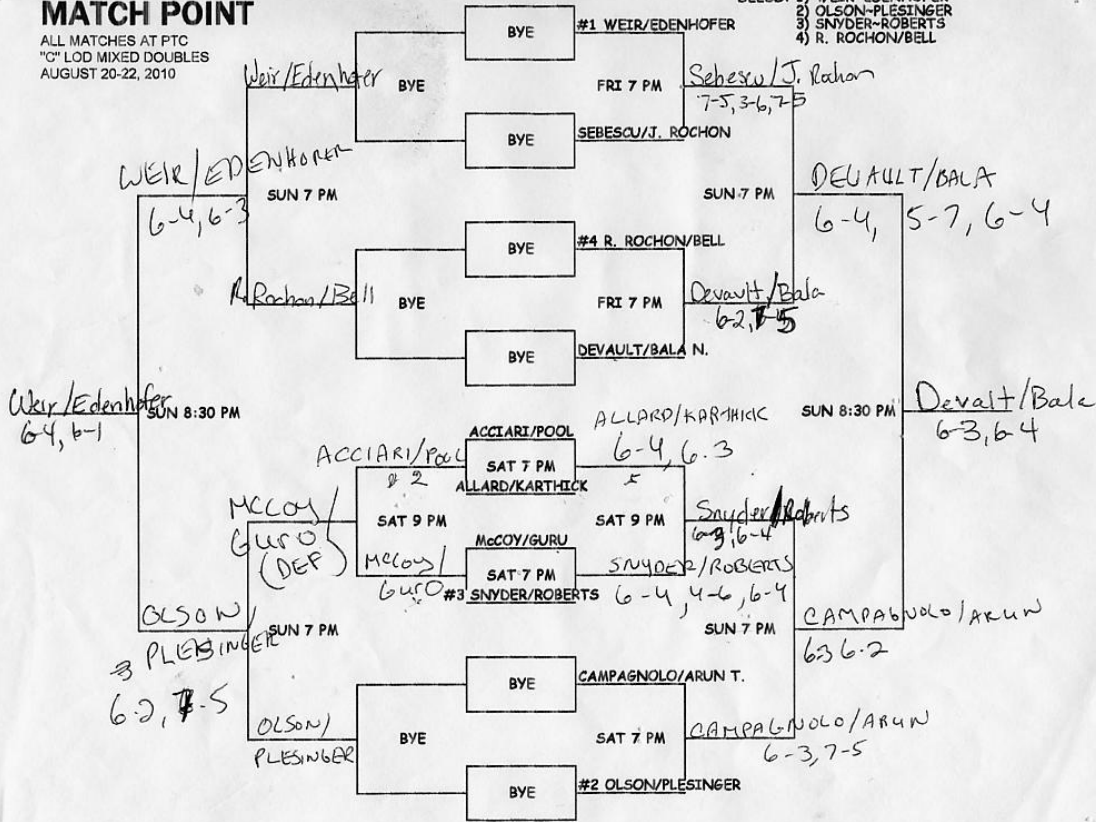 MATCH POINT
ALL MATCHES AT PTC
"C" LOD MIXED DOUBLES
AUGUST 20-22, 2010
2) OLSON~PLESINGER
3) SNYDER~ROBERTS
4) R. ROCHON/BELL
BYE
#1 WEIR/EDENHOFER
Weir/Edenhofer
BYE
FRI 7 PM
Sebescu/J. Rochon
7-5, 3-6, 7-5
BYE
SEBESCU/J. ROCHON
WEIR/EDENHORER
6-4, 6-3
SUN 7 PM
SUN 7 PM
DEVAULT/BALA
6-4, 5-7, 6-4
BYE
#4 R. ROCHON/BELL
R. Rochon/Bell
BYE
FRI 7 PM
Devault/Bala
6-2, 7-5
BYE
DEVAULT/BALA N.
Weir/Edenhofer
6-4, 6-1
SUN 8:30 PM
SUN 8:30 PM
Devalt/Bala
6-3, 6-4
ACCIARI/POOL
ACCIARI/POOL
2
SAT 7 PM
ALLARD/KARTHICK
ALLARD/KARTHICK
6-4, 6.3
MCCOY/
GURO
(DEF)
SAT 9 PM
SAT 9 PM
Snyder/Roberts
6-3, 6-4
McCOY/GURU
McCoy/
GURO
SAT 7 PM
#3 SNYDER/ROBERTS
SNYDER/ROBERTS
6-4, 4-6, 6-4
OLSON/
PLESINGER
6-2, 7-5
SUN 7 PM
SUN 7 PM
CAMPAGNOLO/ARUN
63 6-2
BYE
CAMPAGNOLO/ARUN T.
OLSON/
PLESINGER
BYE
SAT 7 PM
CAMPAGNOLO/ARUN
6-3, 7-5
BYE
#2 OLSON/PLESINGER